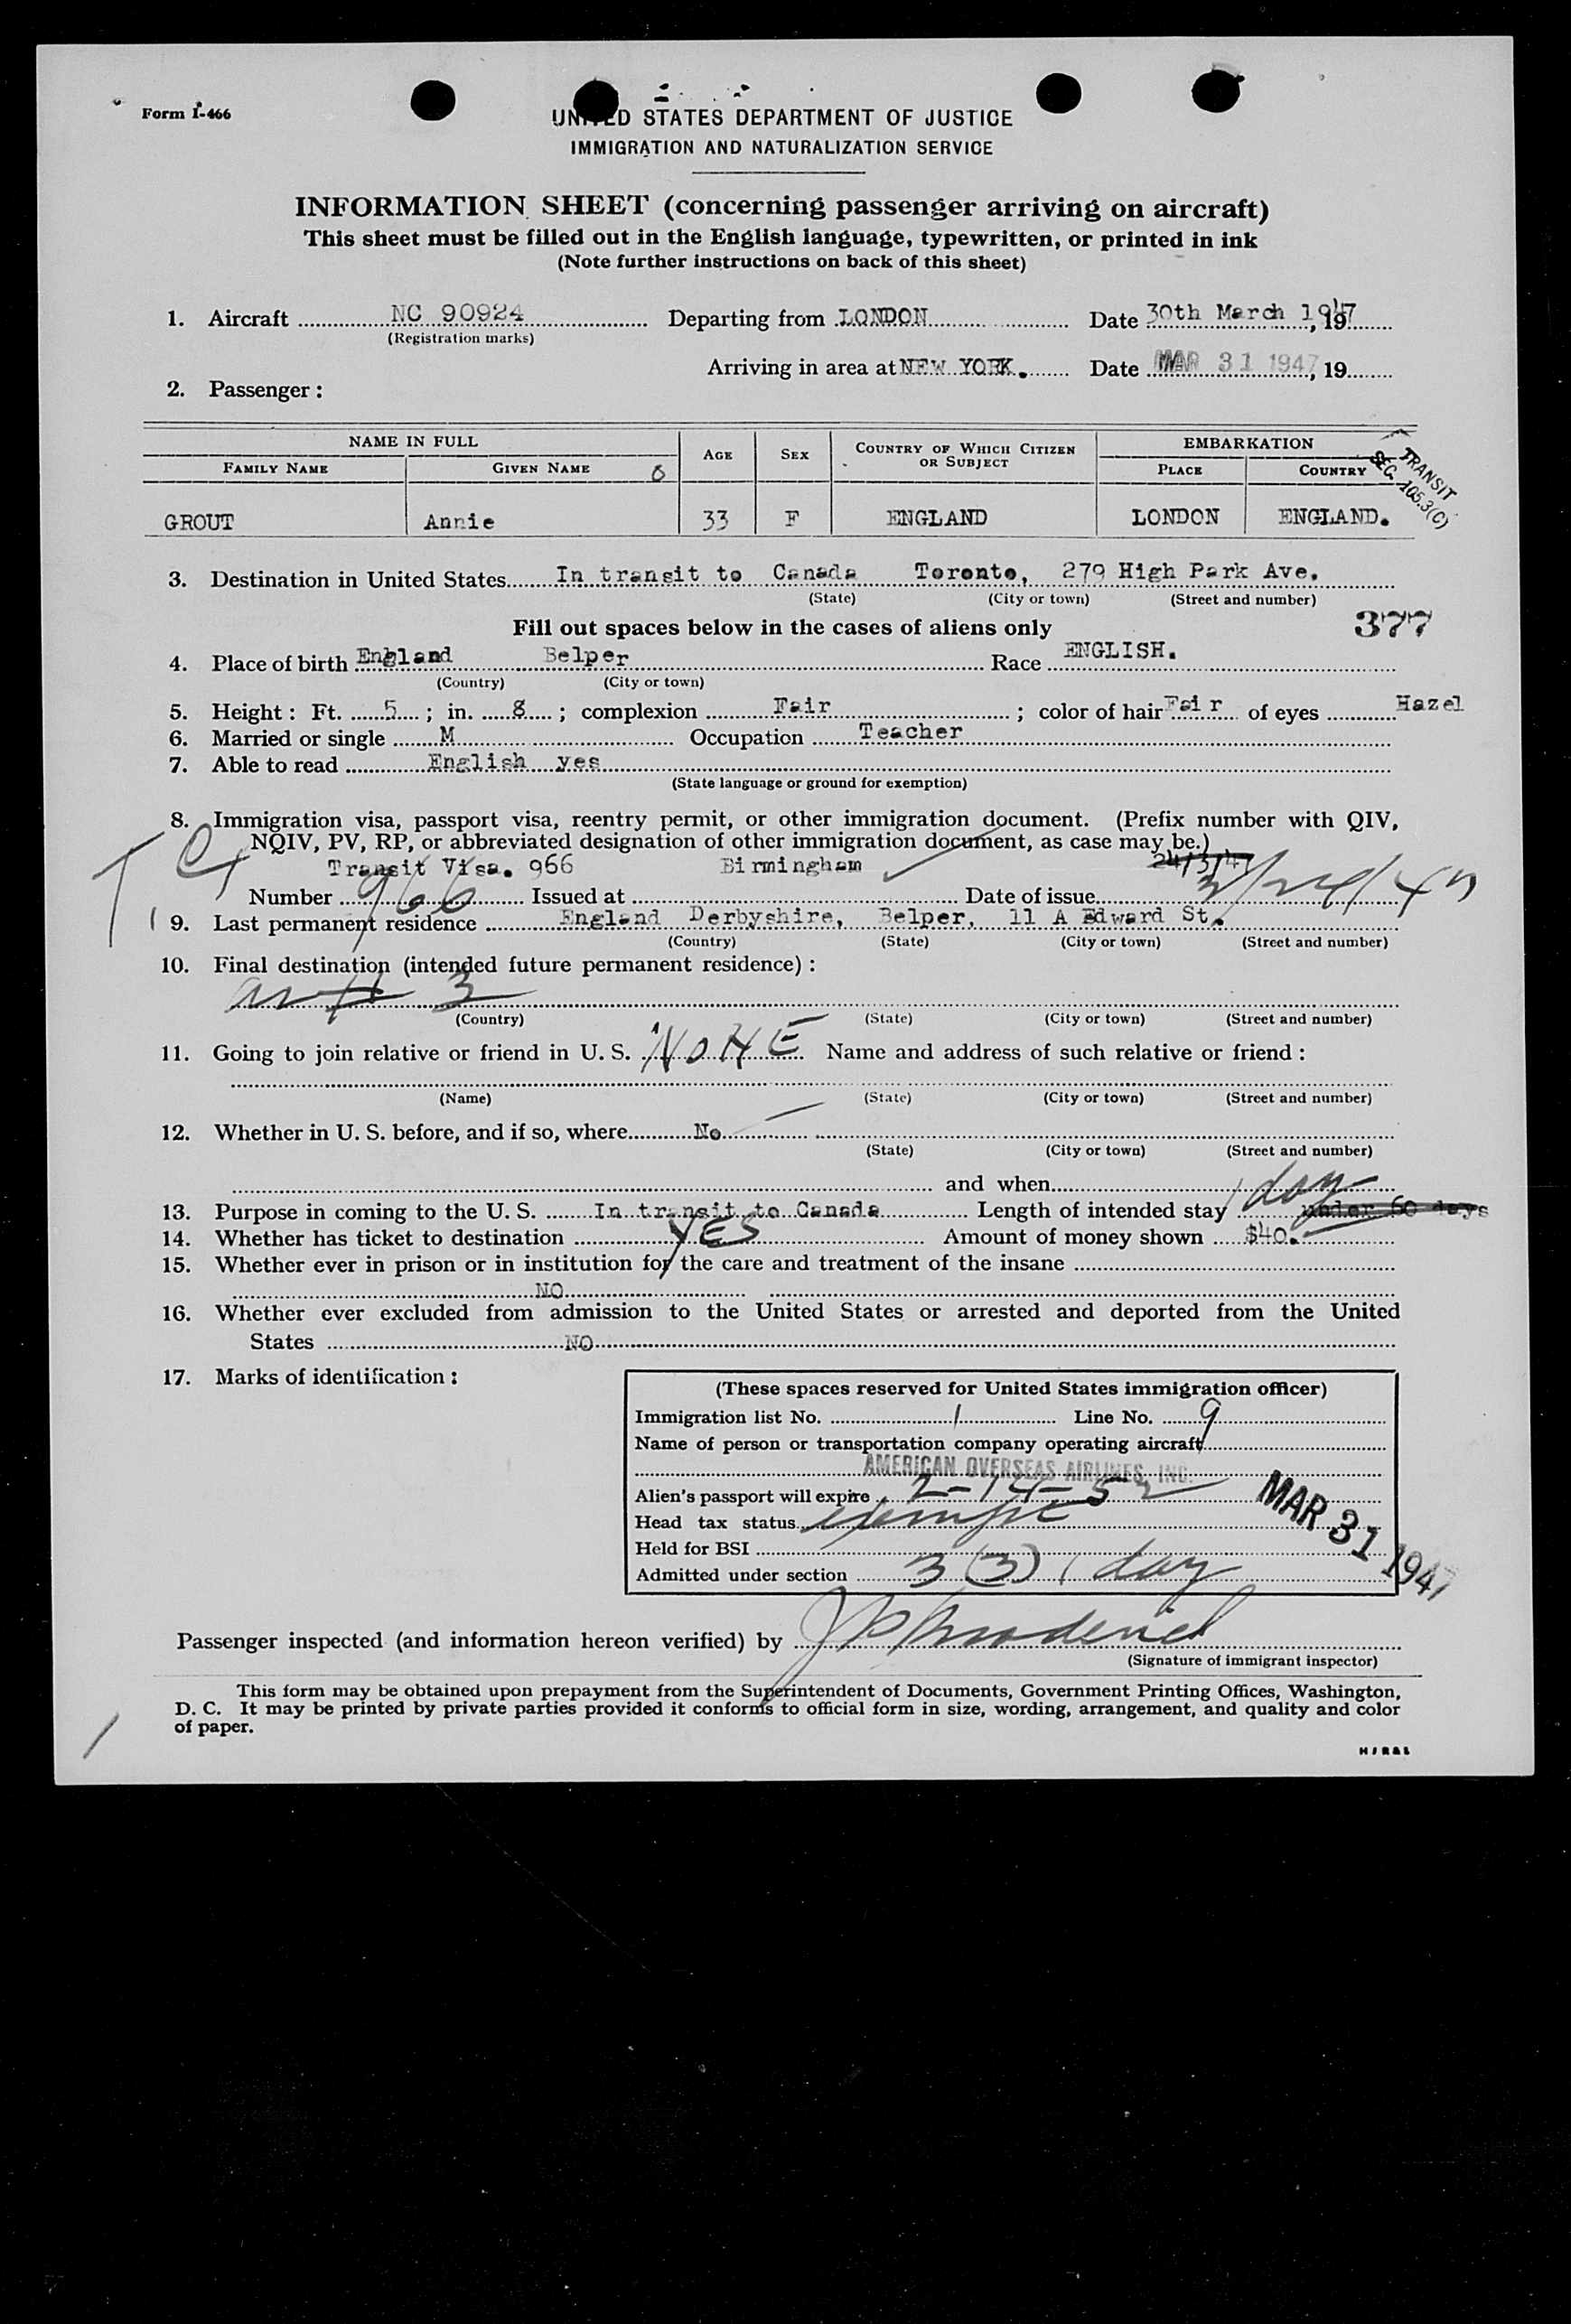 Form I-466
UNITED STATES DEPARTMENT OF JUSTICE
IMMIGRATION AND NATURALIZATION SERVICE
INFORMATION SHEET (concerning passenger arriving on aircraft)
This sheet must be filled out in the English language, typewritten, or printed in ink
(Note further instructions on back of this sheet)
1. Aircraft NC 90924 Departing from LONDON Date 30th March 1947, 19
(Registration marks)
Arriving in area at NEW YORK. Date MAR 31 1947, 19
2. Passenger:
NAME IN FULL AGE SEX COUNTRY OF WHICH CITIZEN OR SUBJECT EMBARKATION
FAMILY NAME GIVEN NAME PLACE COUNTRY
TRANSIT
SEC. 105.3(C)
GROUT Annie 33 F ENGLAND LONDON ENGLAND.
3. Destination in United States In transit to Canada Toronto, 279 High Park Ave.
(State) (City or town) (Street and number)
377
Fill out spaces below in the cases of aliens only
4. Place of birth England Belper Race ENGLISH.
(Country) (City or town)
5. Height: Ft. 5; in. 8; complexion Fair; color of hair Fair of eyes Hazel
6. Married or single M Occupation Teacher
7. Able to read English yes
(State language or ground for exemption)
8. Immigration visa, passport visa, reentry permit, or other immigration document. (Prefix number with QIV,
NQIV, PV, RP, or abbreviated designation of other immigration document, as case may be.)
Transit Visa. 966 Birmingham 24/3/47
Number 966 Issued at Date of issue 3/24/47
9. Last permanent residence England Derbyshire, Belper, 11 A Edward St.
(Country) (State) (City or town) (Street and number)
10. Final destination (intended future permanent residence):
3
(Country) (State) (City or town) (Street and number)
11. Going to join relative or friend in U. S. NONE Name and address of such relative or friend:
(Name) (State) (City or town) (Street and number)
12. Whether in U. S. before, and if so, where No
(State) (City or town) (Street and number)
and when
13. Purpose in coming to the U. S. In transit to Canada Length of intended stay 1 day under 60 days
14. Whether has ticket to destination YES Amount of money shown $40.
15. Whether ever in prison or in institution for the care and treatment of the insane
NO
16. Whether ever excluded from admission to the United States or arrested and deported from the United
States NO
17. Marks of identification:
(These spaces reserved for United States immigration officer)
Immigration list No. 1 Line No. 9
Name of person or transportation company operating aircraft
AMERICAN OVERSEAS AIRLINES, INC.
Alien's passport will expire 2-14-52
Head tax status exempt
MAR 31 1947
Held for BSI
Admitted under section 3 (3) 1 day
Passenger inspected (and information hereon verified) by
(Signature of immigrant inspector)
This form may be obtained upon prepayment from the Superintendent of Documents, Government Printing Offices, Washington,
D. C. It may be printed by private parties provided it conforms to official form in size, wording, arrangement, and quality and color
of paper.